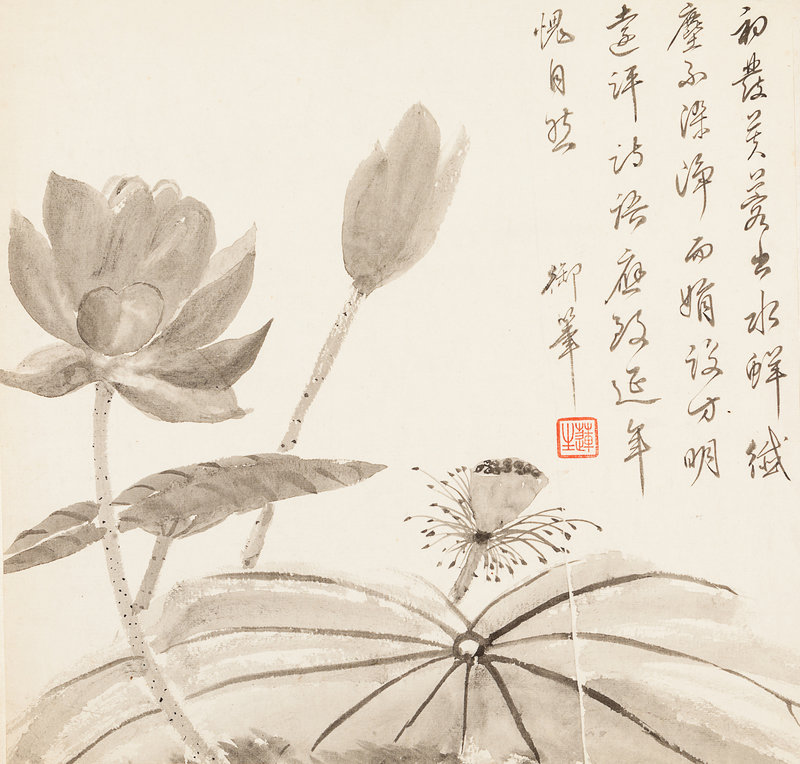 初發芙蓉出水鮮纖
塵不染淨而娟設方明
遠評詩語應致延年
愧自然
御筆